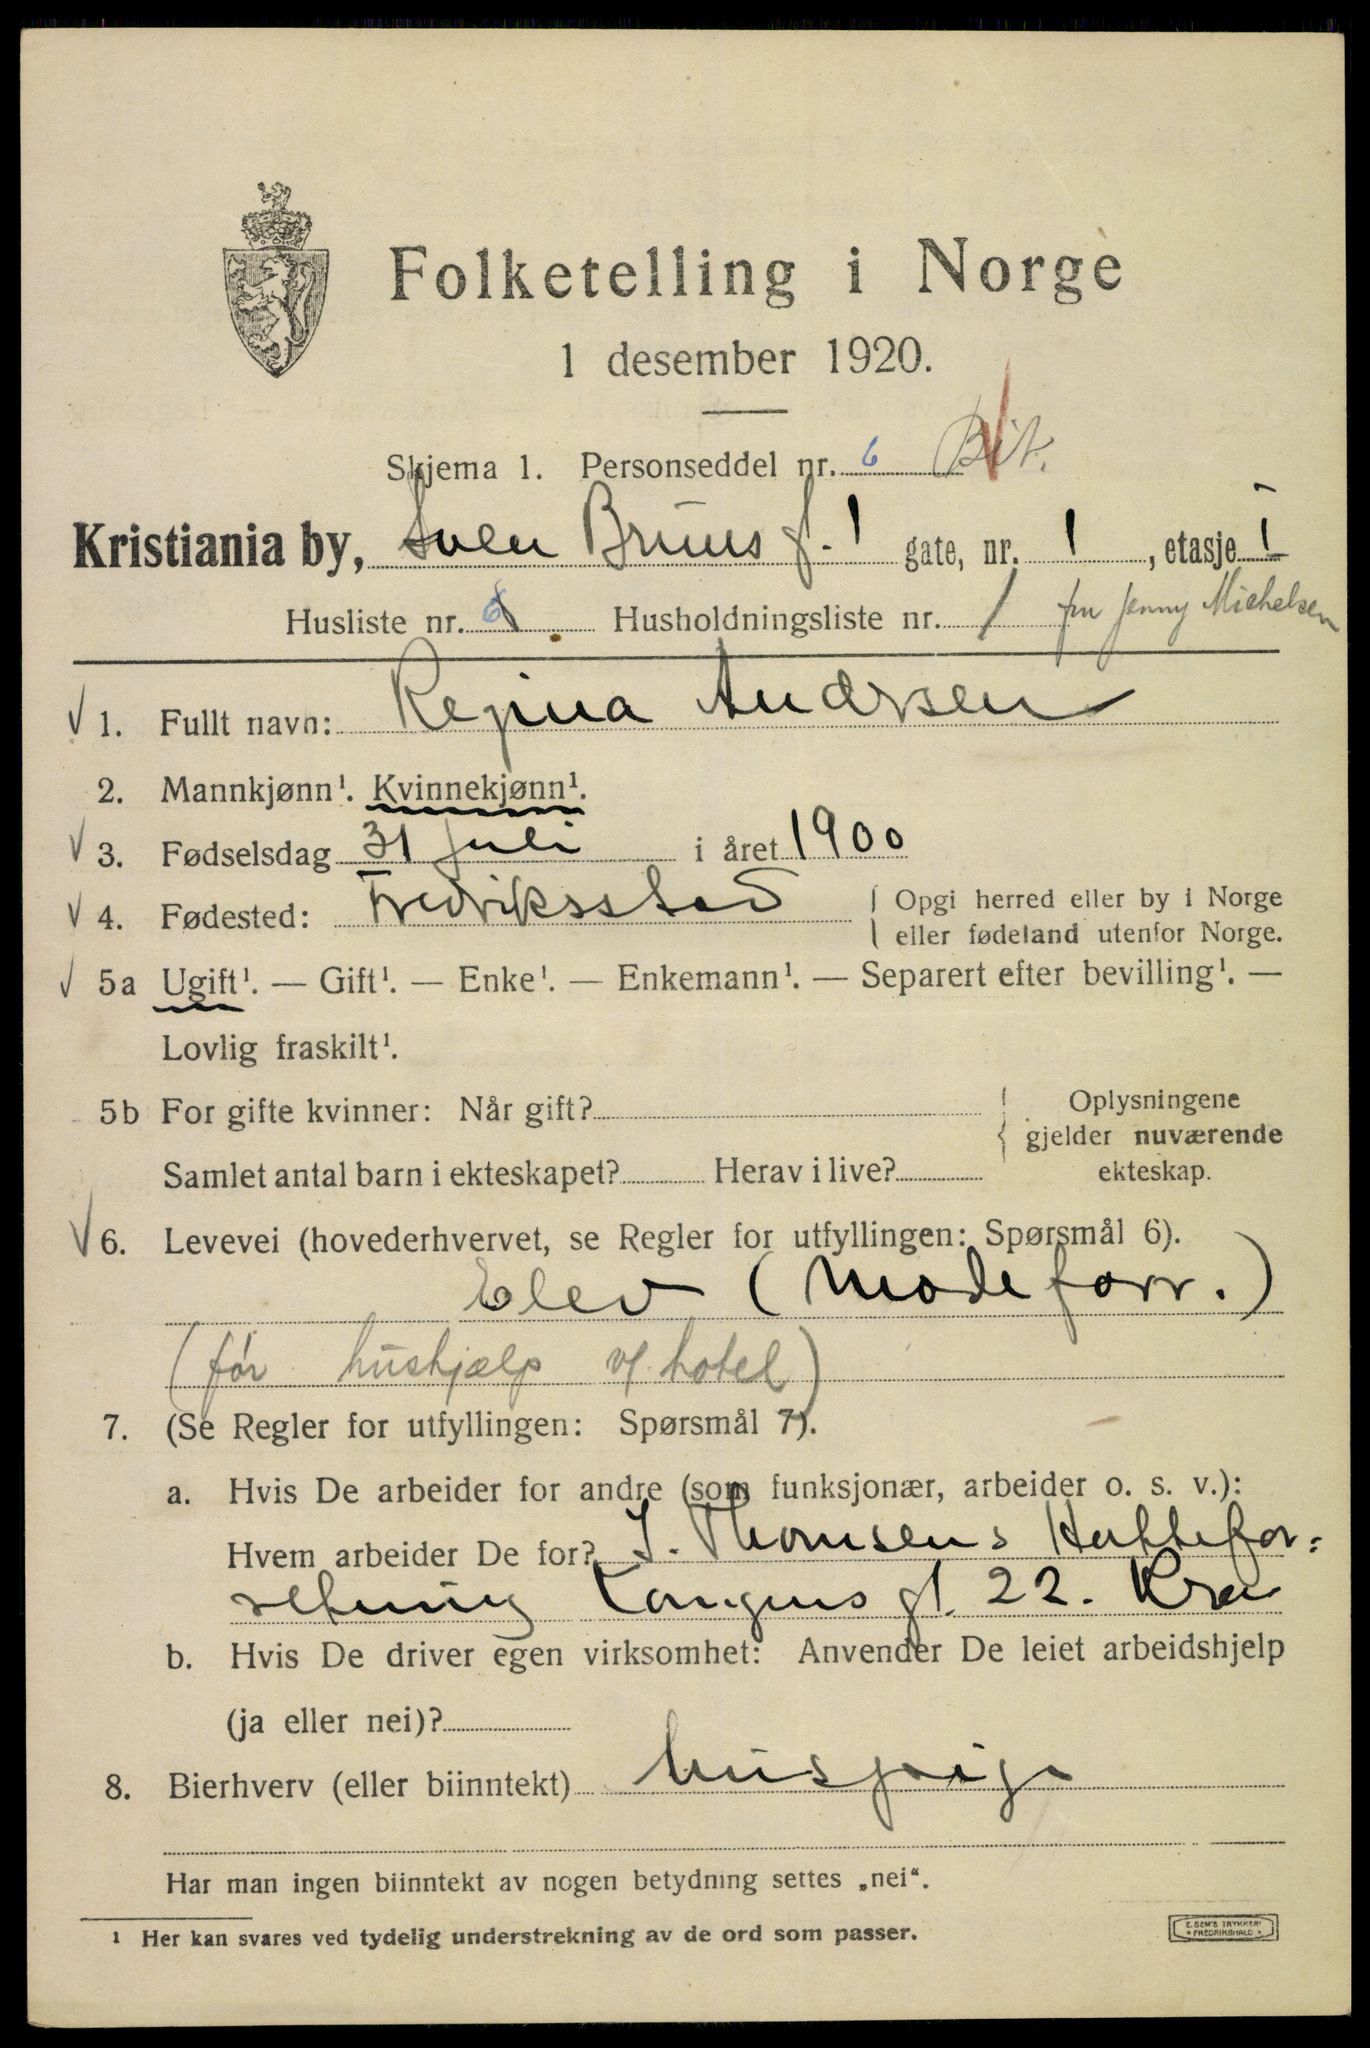 Folketelling i Norge
1 desember 1920.
Skjema 1. Personseddel nr. 6
Kristiania by, Sven Bruns gt. 1 gate, nr. 1, etasje I
Husliste nr. 6 Husholdningsliste nr. 1 fru Jenny Michelsen
1. Fullt navn: Regina Andrsen
2. Mannkjønn¹. Kvinnekjønn¹.
3. Fødselsdag 31 juli i året 1900
4. Fødested: Fredriksstad Opgi herred eller by i Norge
eller fødeland utenfor Norge.
5a Ugift¹. — Gift¹. — Enke¹. — Enkemann¹. — Separert efter bevilling¹. —
Lovlig fraskilt¹.
5b For gifte kvinner: Når gift? Oplysningene
gjelder nuværende
Samlet antal barn i ekteskapet? Herav i live? ekteskap.
6. Levevei (hovederhvervet, se Regler for utfyllingen: Spørsmål 6).
Elev (Mode forr.)
(før hushjælp v/ hotel)
7. (Se Regler for utfyllingen: Spørsmål 7).
a. Hvis De arbeider for andre (som funksjonær, arbeider o. s. v.):
Hvem arbeider De for? J. Thomsens Hattefor-
retning Kongens gt. 22. Kra
b. Hvis De driver egen virksomhet: Anvender De leiet arbeidshjelp
(ja eller nei)?
8. Bierhverv (eller biinntekt)
Har man ingen biinntekt av nogen betydning settes „nei“.
¹ Her kan svares ved tydelig understrekning av de ord som passer.
E. SEM'S TRYKKERI
FREDRIKSHALD